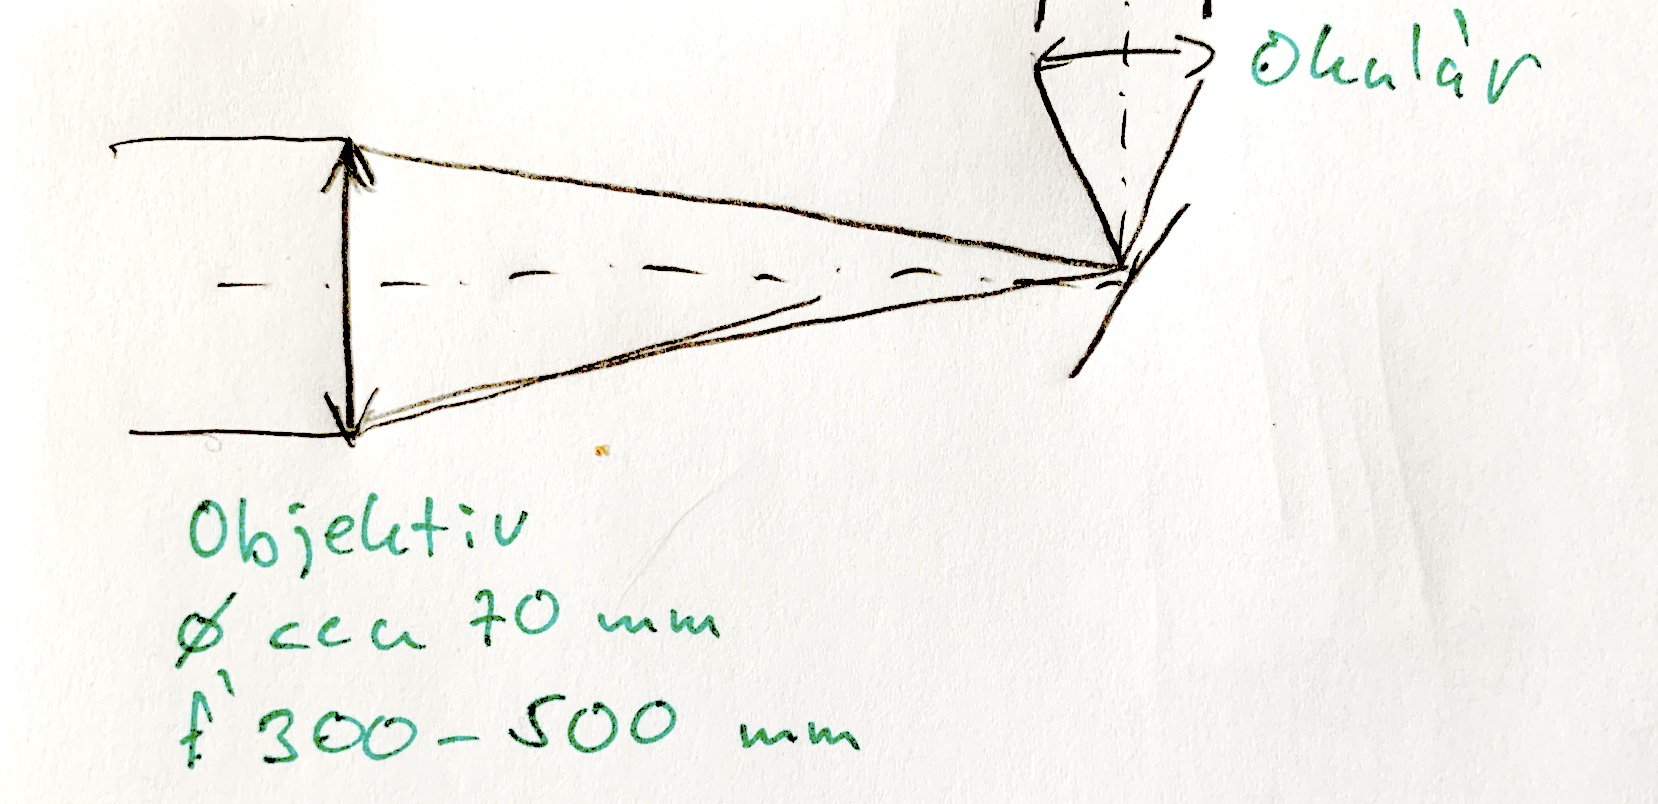 Okulár
Objektiv
ø cca 70 mm
f' 300-500 mm